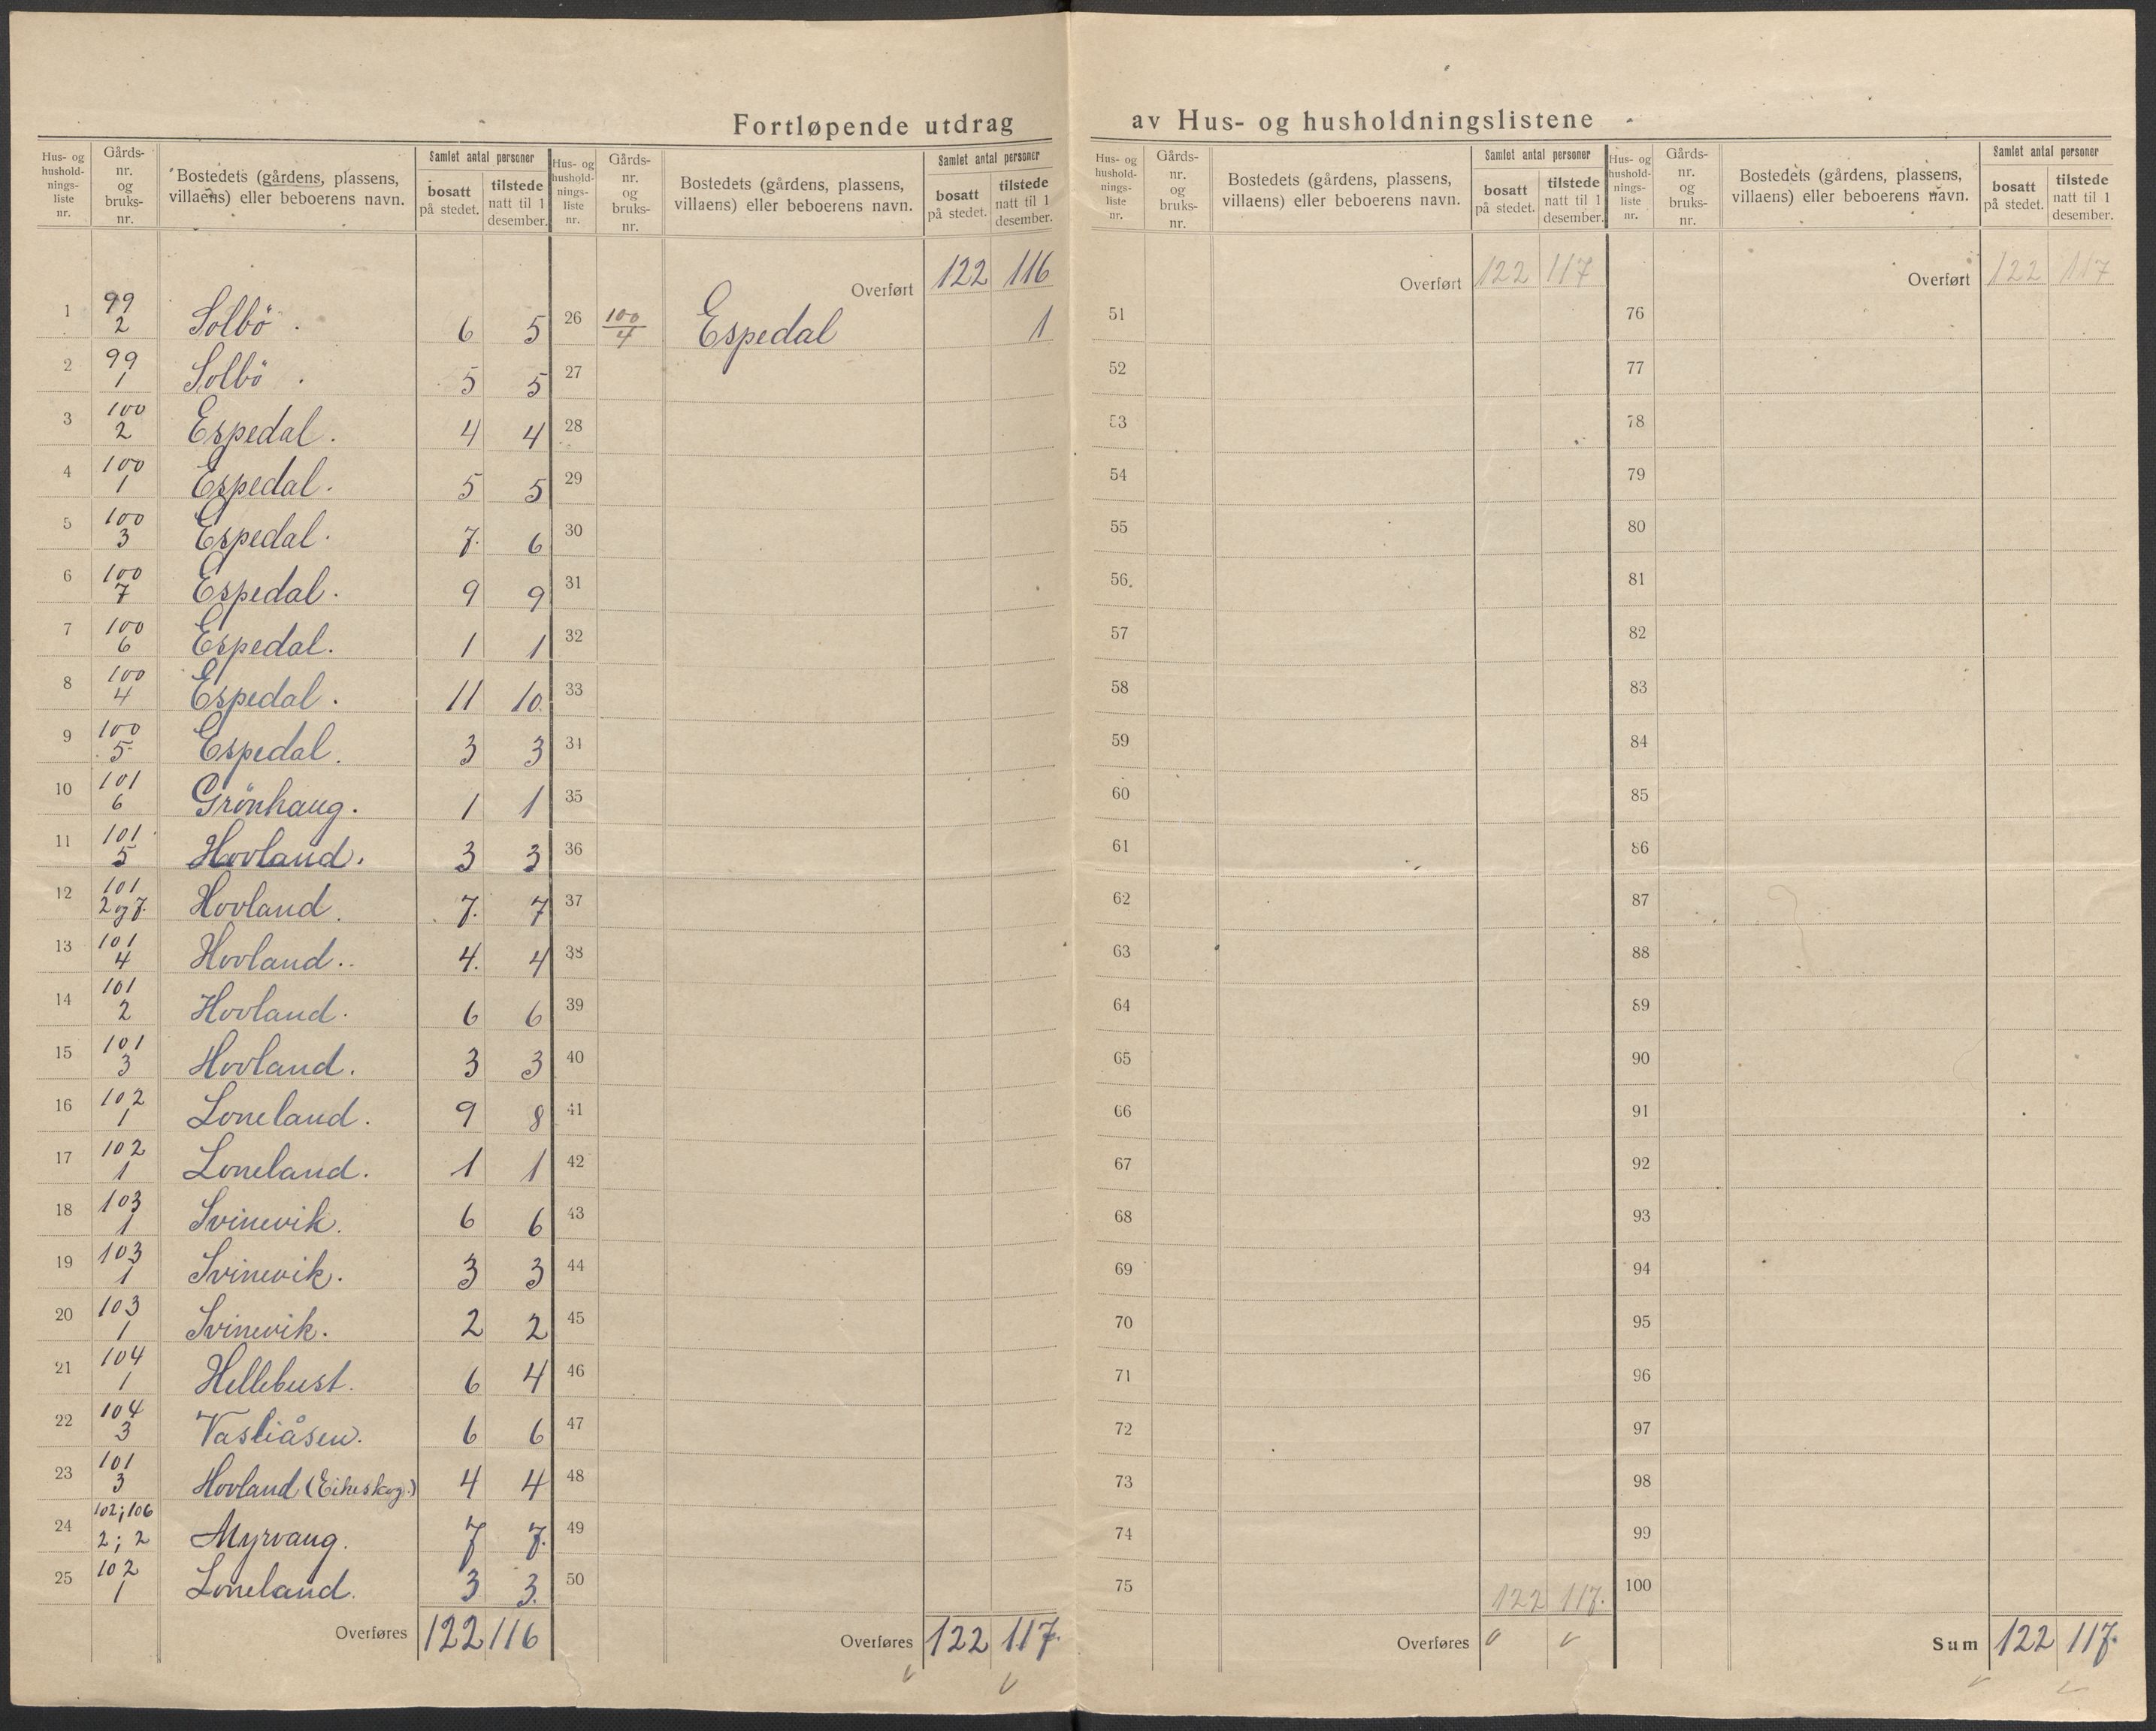 Fortløpende utdrag av Hus- og husholdningslistene
Hus- og husholdnings-liste nr. | Gårds-nr. og bruks-nr. | Bostedets (gårdens, plassens, villaens) eller beboerens navn. | Samlet antal personer bosatt på stedet. | tilstede natt til 1 desember.
1 99/2 Solbö . 6 5
2 99/1 Solbö . 5 5
3 100/2 Espedal. 4 4
4 100/1 Espedal. 5 5
5 100/3 Espedal. 7. 6
6 100/7 Espedal. 9 9
7 100/6 Espedal. 1 1
8 100/4 Espedal. 11 10.
9 100/5 Espedal. 3 3
10 101/6 Grönhaug. 1 1
11 101/5 Hovland. 3 3
12 101/2 og 7. Hovland. 7. 7
13 101/4 Hovland.. 4. 4
14 101/2 Hovland. 6 6
15 101/3 Hovland. 3 3
16 102/1 Loneland. 9 8
17 102/1 Loneland. 1 1
18 103/1 Svinevik. 6 6
19 103/1 Svinevik. 3 3
20 103/1 Svinevik. 2 2
21 104/1 Hellebust. 6 4
22 104/3 Vasliåsen. 6 6
23 101/3 Hovland (Eikeskog.) 4 4
24 102; 106/2; 2 Myrvang. 7 7.
25 102/1 Loneland. 3 3.
Overføres 122 116
Hus- og husholdnings-liste nr. | Gårds-nr. og bruks-nr. | Bostedets (gårdens, plassens, villaens) eller beboerens navn. | Samlet antal personer bosatt på stedet. | tilstede natt til 1 desember.
Overført 122 116
26 100/4 Espedal 1
27
28
29
30
31
32
33
34
35
36
37
38
39
40
41
42
43
44
45
46
47
48
49
50
Overføres 122 117.
Hus- og husholdnings-liste nr. | Gårds-nr. og bruks-nr. | Bostedets (gårdens, plassens, villaens) eller beboerens navn. | Samlet antal personer bosatt på stedet. | tilstede natt til 1 desember.
Overført 122 117
51
52
53
54
55
56.
57
58
59
60
61
62
63
64
65
66
67
68
69
70
71
72
73
74
75 122 117.
Overføres
Hus- og husholdnings-liste nr. | Gårds-nr. og bruks-nr. | Bostedets (gårdens, plassens, villaens) eller beboerens navn. | Samlet antal personer bosatt på stedet. | tilstede natt til 1 desember.
Overført 122 117
76
77
78
79
80
81
82
83
84
85
86
87
88
89
90
91
92
93
94
95
96
97
98
99
100
Sum 122 117.